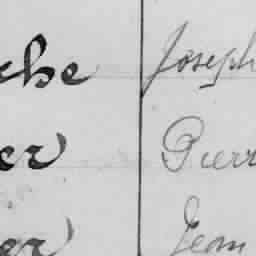 che Joseph
er Pierr
er Jean